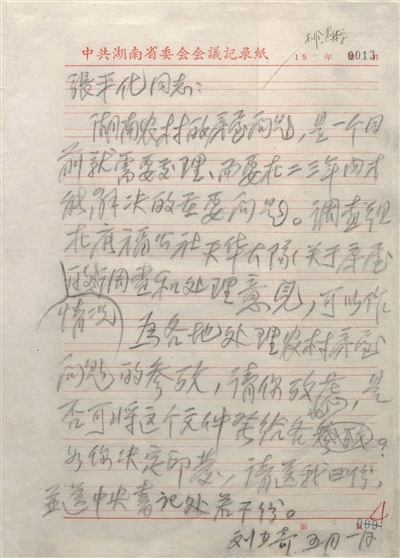 中共湖南省委員会会議記录紙
19 年 月 日
0013
張平化同志：
湖南农村的房屋问题，是一个目
前就需要处理、而要在二三年内才
能解决的重要问题。调查组
在广福公社天华大队关于房屋
的调查和处理意见，可以作
情况
为各地处理农村房屋
问题的参考，请你考虑，是
否可将这个文件发给各
参考？
如你决定印发，请送我四份，
并送中央书记处若干份。
刘少奇 五月一日
第
4